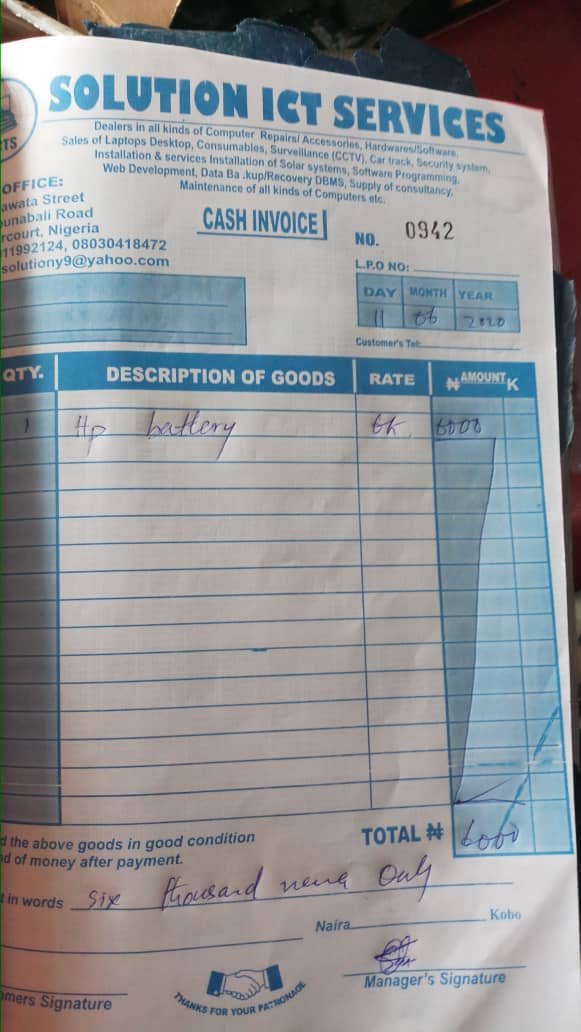 TS
SOLUTION ICT SERVICES
Dealers in all kinds of Computer Repairs/ Accessories, Hardwares/Software,
Sales of Laptops Desktop, Consumables, Surveillance (CCTV), Car track, Security system,
Installation & services Installation of Solar systems, Software Programming,
Web Development, Data Ba .kup/Recovery DBMS, Supply of consultancy,
Maintenance of all kinds of Computers etc.
OFFICE:
awata Street
unabali Road
rcourt, Nigeria
11992124, 08030418472
solutiony9@yahoo.com
CASH INVOICE
NO. 0942
L.P.O NO:
DAY MONTH YEAR
11 06 2020
Customer's Tel:
QTY. DESCRIPTION OF GOODS RATE ₦ AMOUNT K
1 Hp battery 6K 6000
d the above goods in good condition
nd of money after payment.
TOTAL ₦ 6000
t in words Six thousand only
Naira Kobo
Manager's Signature
omers Signature
THANKS FOR YOUR PATRONAGE